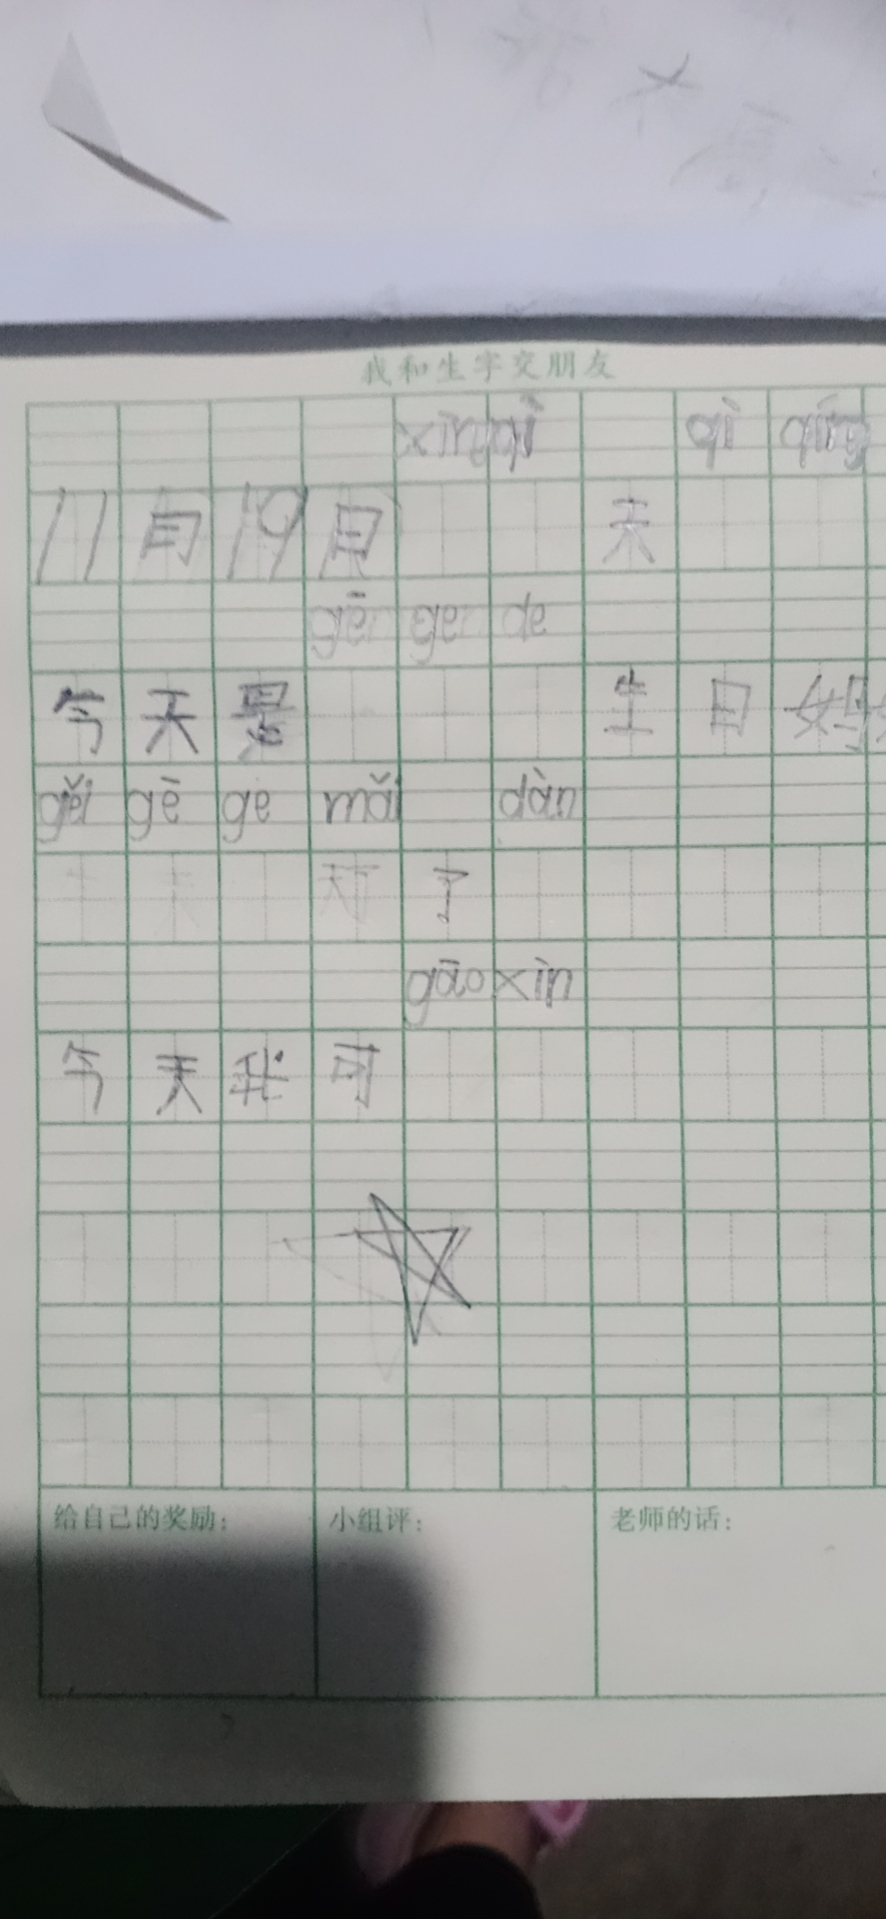 我和生字交朋友
11月19日 天
gē ge de
今天是 生日妈
gěi gē ge mǎi dàn
了
gāo xìn
今天我可
给自己的奖励： 小组评： 老师的话：